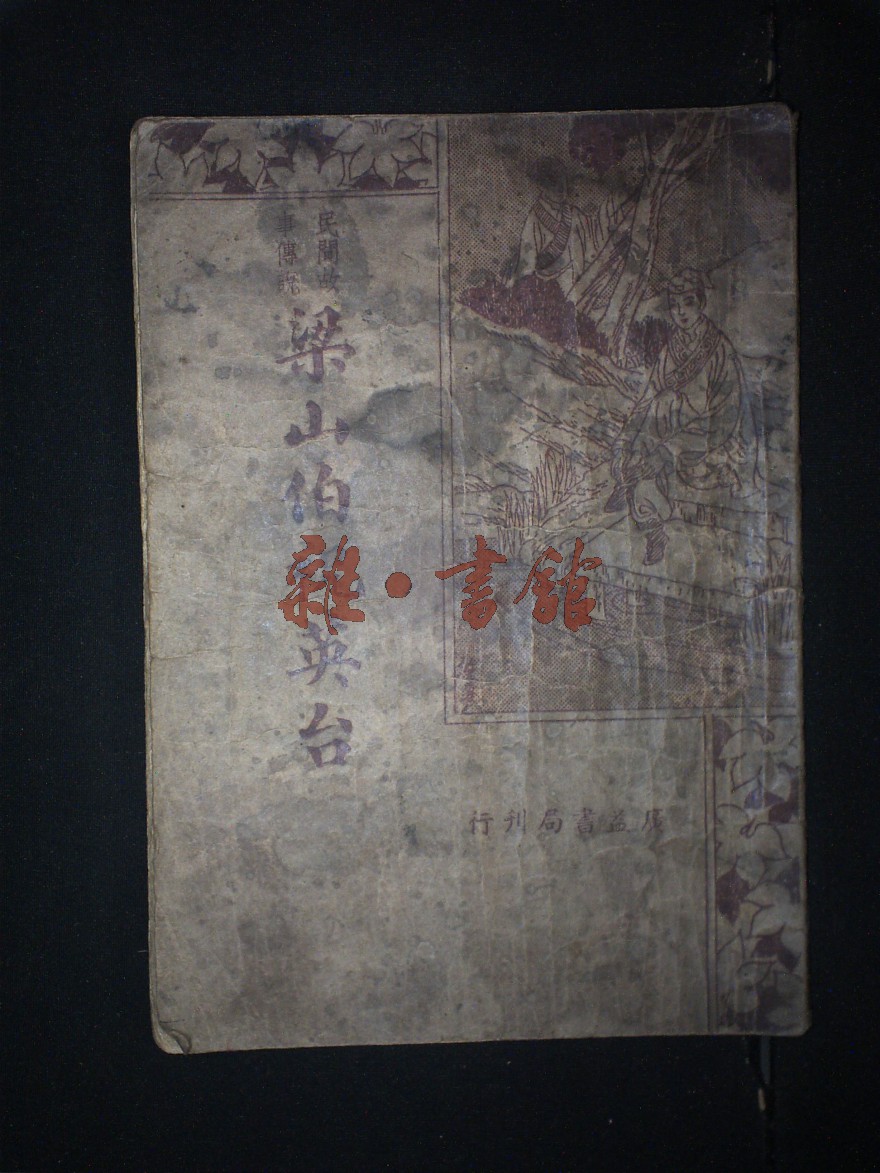 民間故
事傳說
梁山伯 英台
雜·書館
廣益書局刊行